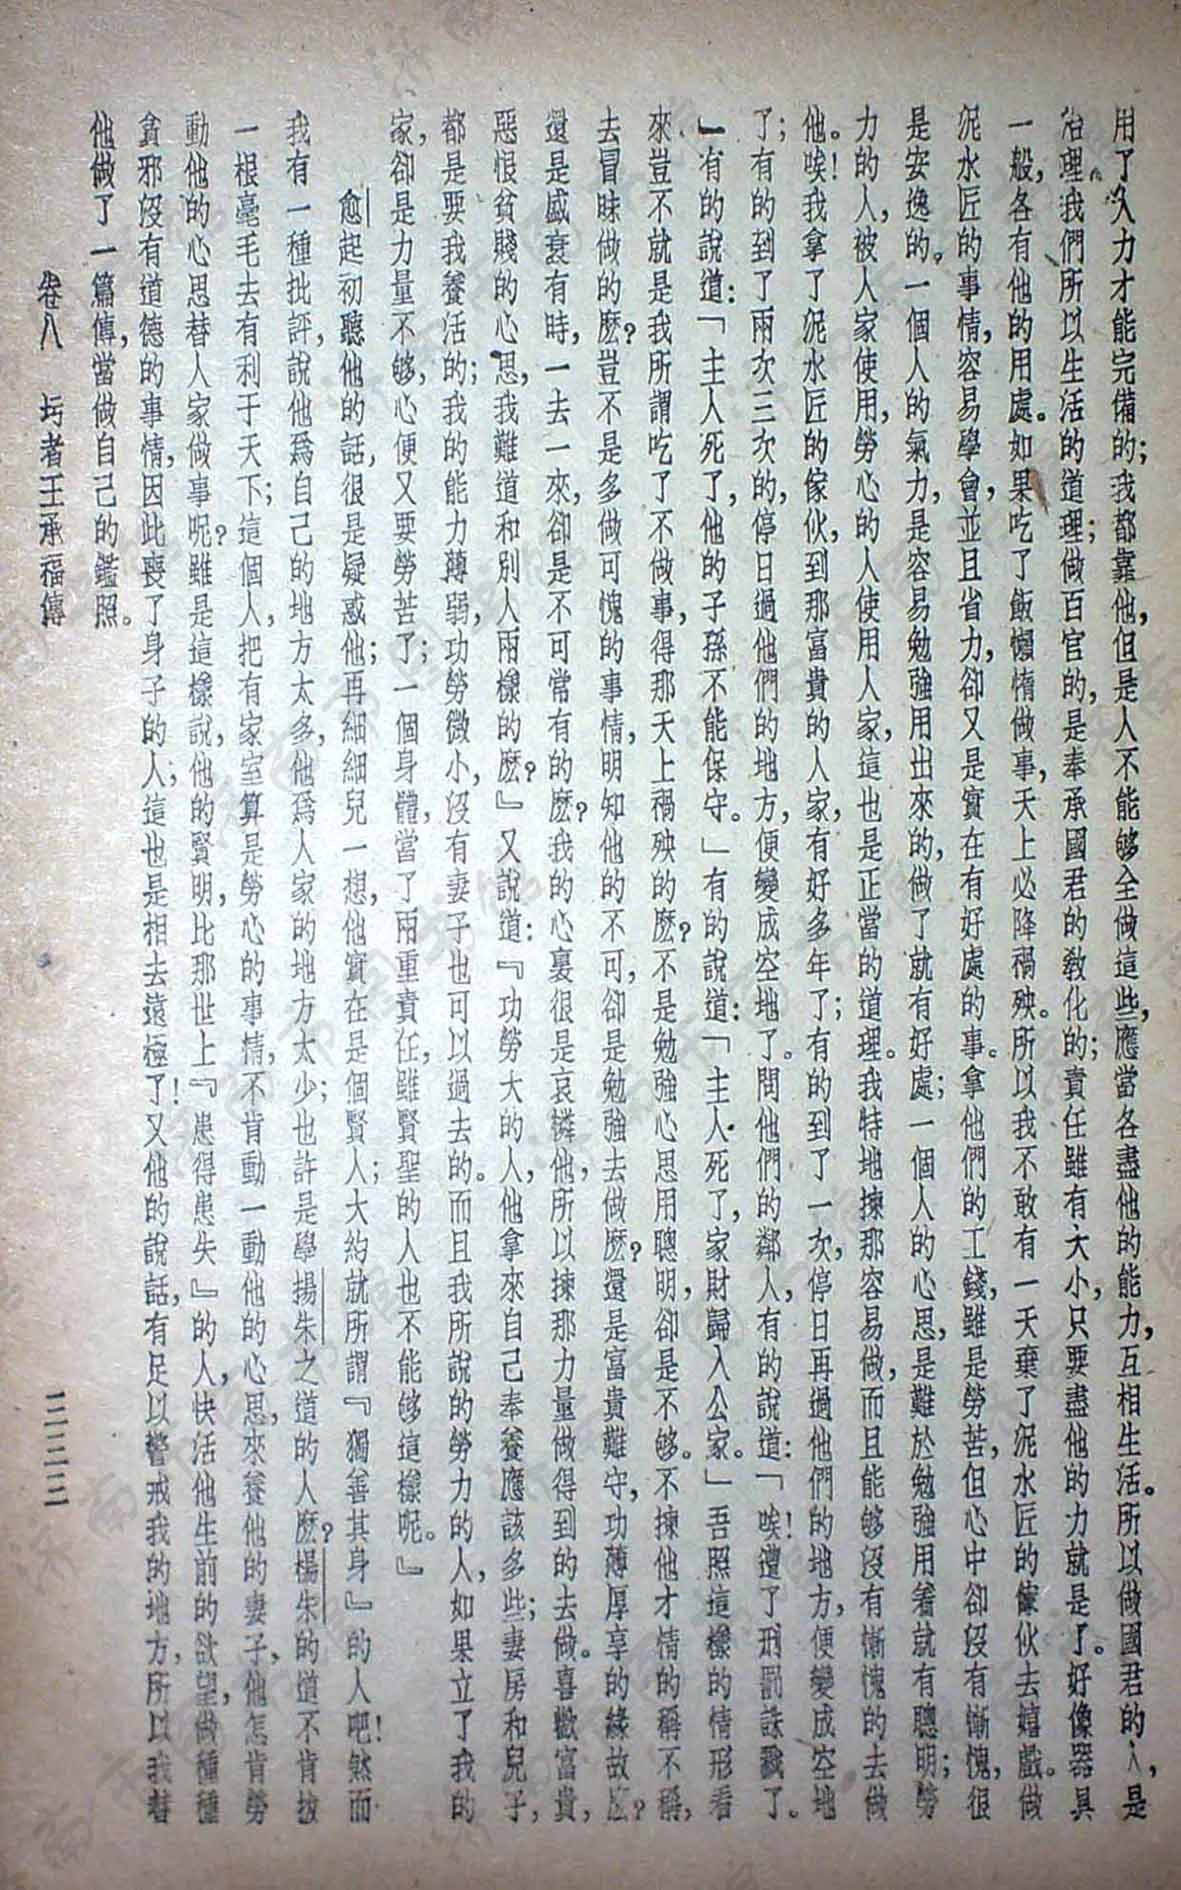 用了人力才能完備的；我都靠他，但是人不能够全做這些，應當各盡他的能力，互相生活。所以做國君的人，是
治理我們所以生活的道理；做百官的，是奉承國君的教化的；責任雖有大小，只要盡他的力就是了。好像器具
一般，各有他的用處。如果吃了飯懶惰做事，天上必降禍殃。所以我不敢有一天棄了泥水匠的傢伙去嬉戲。做
泥水匠的事情，容易學會，並且省力，卻又是實在有好處的事。拿他們的工錢，雖是勞苦，但心中卻沒有慚愧，很
是安逸的。一個人的氣力，是容易勉強用出來的，做了就有好處；一個人的心思，是難於勉強用着就有聰明；勞
力的人，被人家使用，勞心的人使用人家，這也是正當的道理。我特地揀那容易做，而且能够沒有慚愧的去做
他。唉！我拿了泥水匠的傢伙，到那富貴的人家，有好多年了；有的到了一次，停日再過他們的地方，便變成空地
了；有的到了兩次三次的，停日過他們的地方，便變成空地了。問他們的鄰人，有的說道：「唉！遭了刑罰誅戮了。
」有的說道：「主人死了，他的子孫不能保守。」有的說道：「主人死了，家財歸入公家。」吾照這樣的情形看
來，豈不就是我所謂吃了不做事，得那天上禍殃的麽？不是勉強心思用聰明，卻是不够。不揀他才情的稱不稱，
去冒昧做的麽？豈不是多做可愧的事情，明知他的不可，卻是勉強去做麽？還是富貴難守，功薄厚享的緣故麽？
還是盛衰有時，一去一來，卻是不可常有的麽？我的心裏很是哀憐他，所以揀那力量做得到的去做。喜歡富貴，
惡恨貧賤的心思，我難道和別人兩樣的麽？』又說道：『功勞大的人，他拿來自己奉養應該多些；妻房和兒子，
都是要我養活的；我的能力薄弱，功勞微小，沒有妻子也可以過去的。而且我所說的勞力的人，如果立了我的
家，卻是力量不够，心便又要勞苦了；一個身體，當了兩重責任，雖賢聖的人也不能够這樣呢。』
愈起初聽他的話，很是疑惑他；再細細兒一想，他實在是個賢人；大約就所謂『獨善其身』的人吧！然而
我有一種批評，說他爲自己的地方太多，他爲人家的地方太少；也許是學揚朱之道的人麽？楊朱的道不肯拔
一根毫毛去有利于天下；這個人，把有家室算是勞心的事情，不肯動一動他的心思，來養他的妻子，他怎肯勞
動他的心思替人家做事呢？雖是這樣說，他的賢明，比那世上『患得患失』的人，快活他生前的欲望，做種種
貪邪沒有道德的事情，因此喪了身子的人；這也是相去遠極了！又他的說話，有足以警戒我的地方，所以我替
他做了一篇傳，當做自己的鑑照。
卷八 圬者王承福傳 三三三